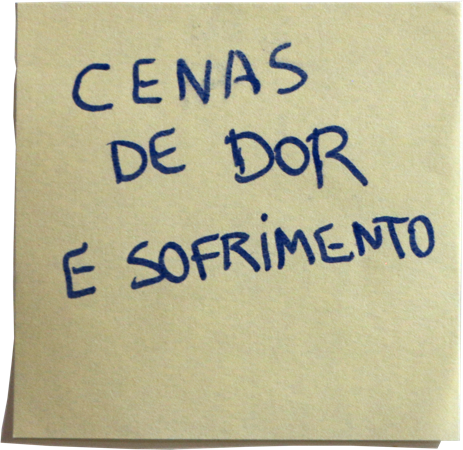 CENAS
DE DOR
E SOFRiMENTO